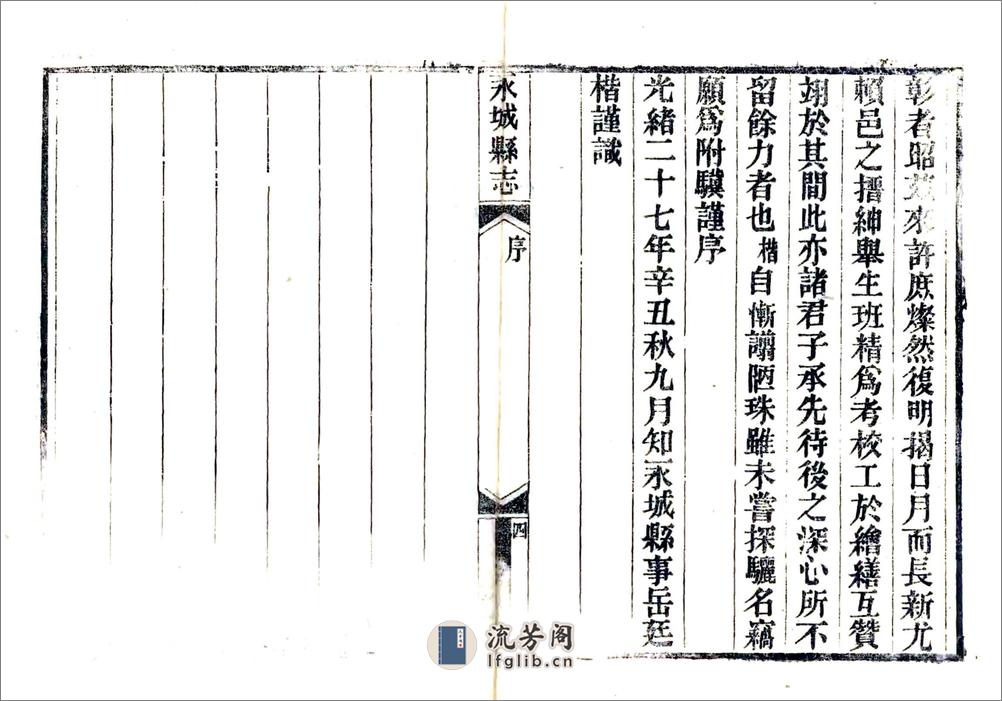 彰者昭茲來許庶燦然復明揭日月而長新尤
賴邑之搢紳舉生班精為考校工於繪繕互贊
翊於其間此亦諸君子承先待後之深心所不
留餘力者也楷自慚譾陋珠雖未嘗探驪名竊
願為附驥謹序
光緒二十七年辛丑秋九月知永城縣事岳廷
楷謹識
永城縣志
序
四
流芳阁
lfglib.cn